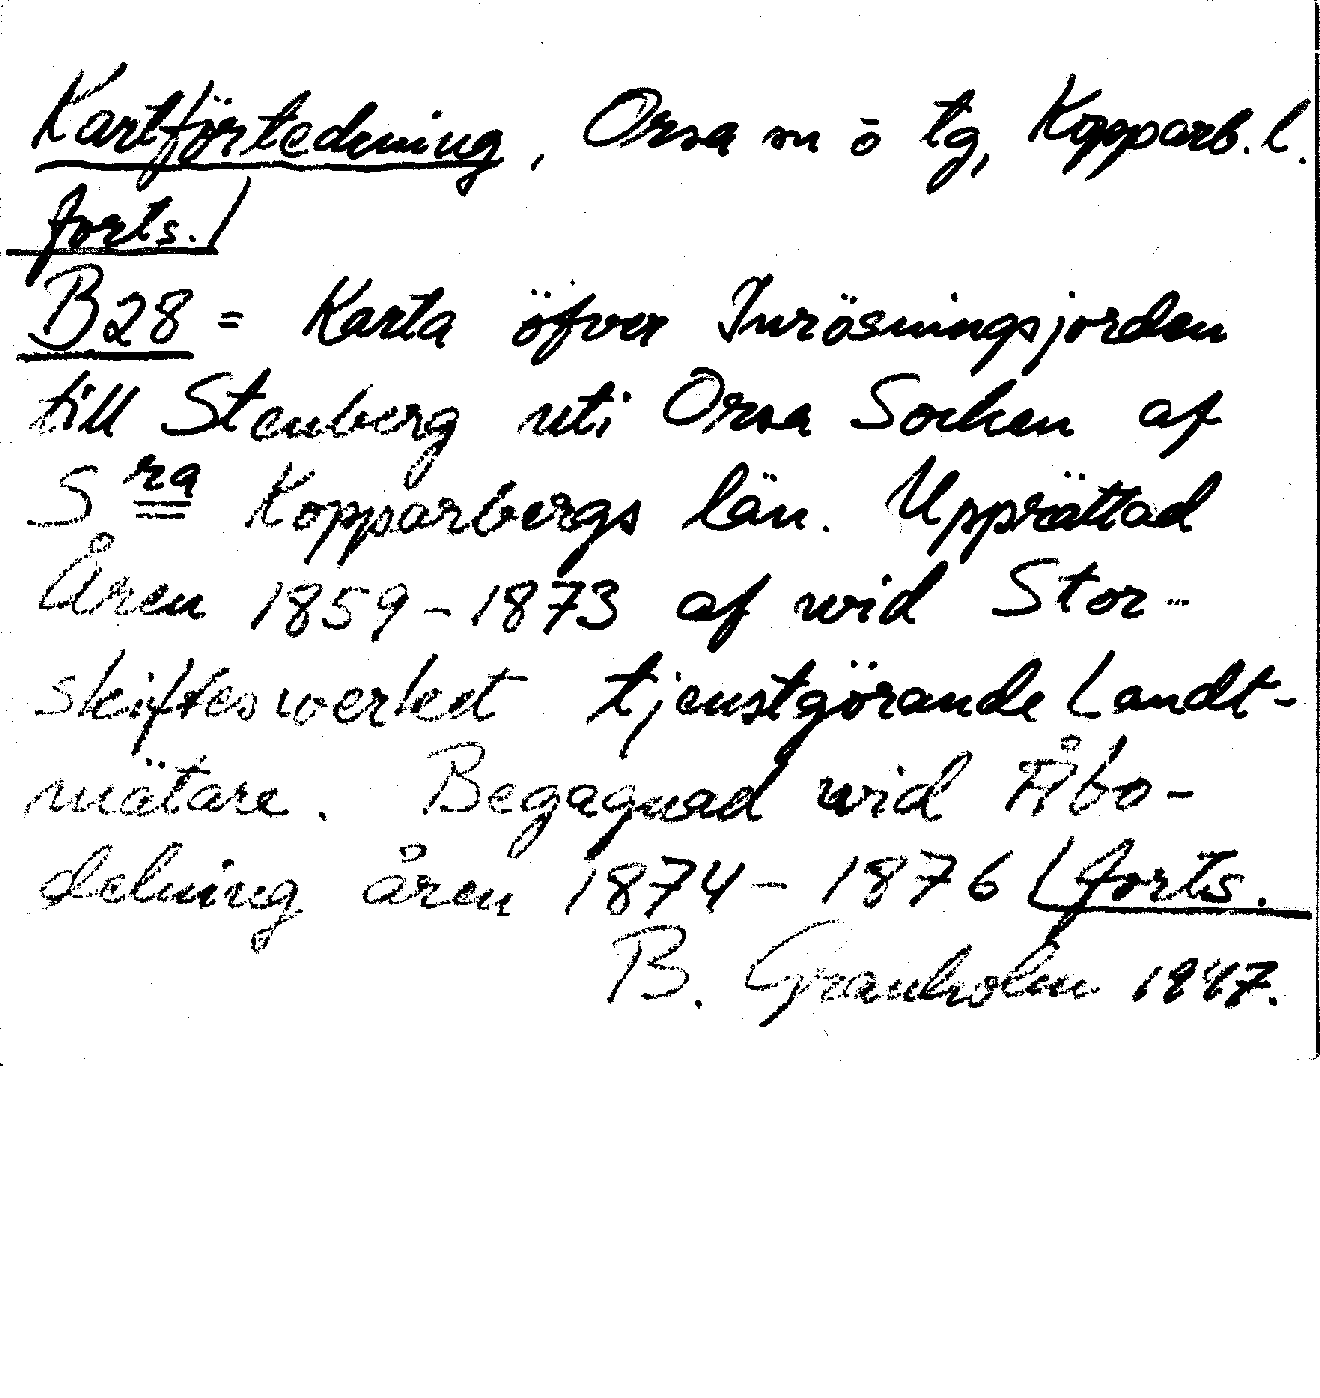 Kartförteckning, Orsa sn ö tg, Kopparb. l.
forts./
B28 = Karta öfver Inrösningsjorden
till Stenberg uti Orsa Socken af
S ra Kopparbergs län. Upprättad
Åren 1859-1873 af wid Stor-
skifteswerket tjenstgörande Landt-
mätare. Begagnad wid Åbo-
delning åren 1874-1876 /forts.
B. Granholm 1947.